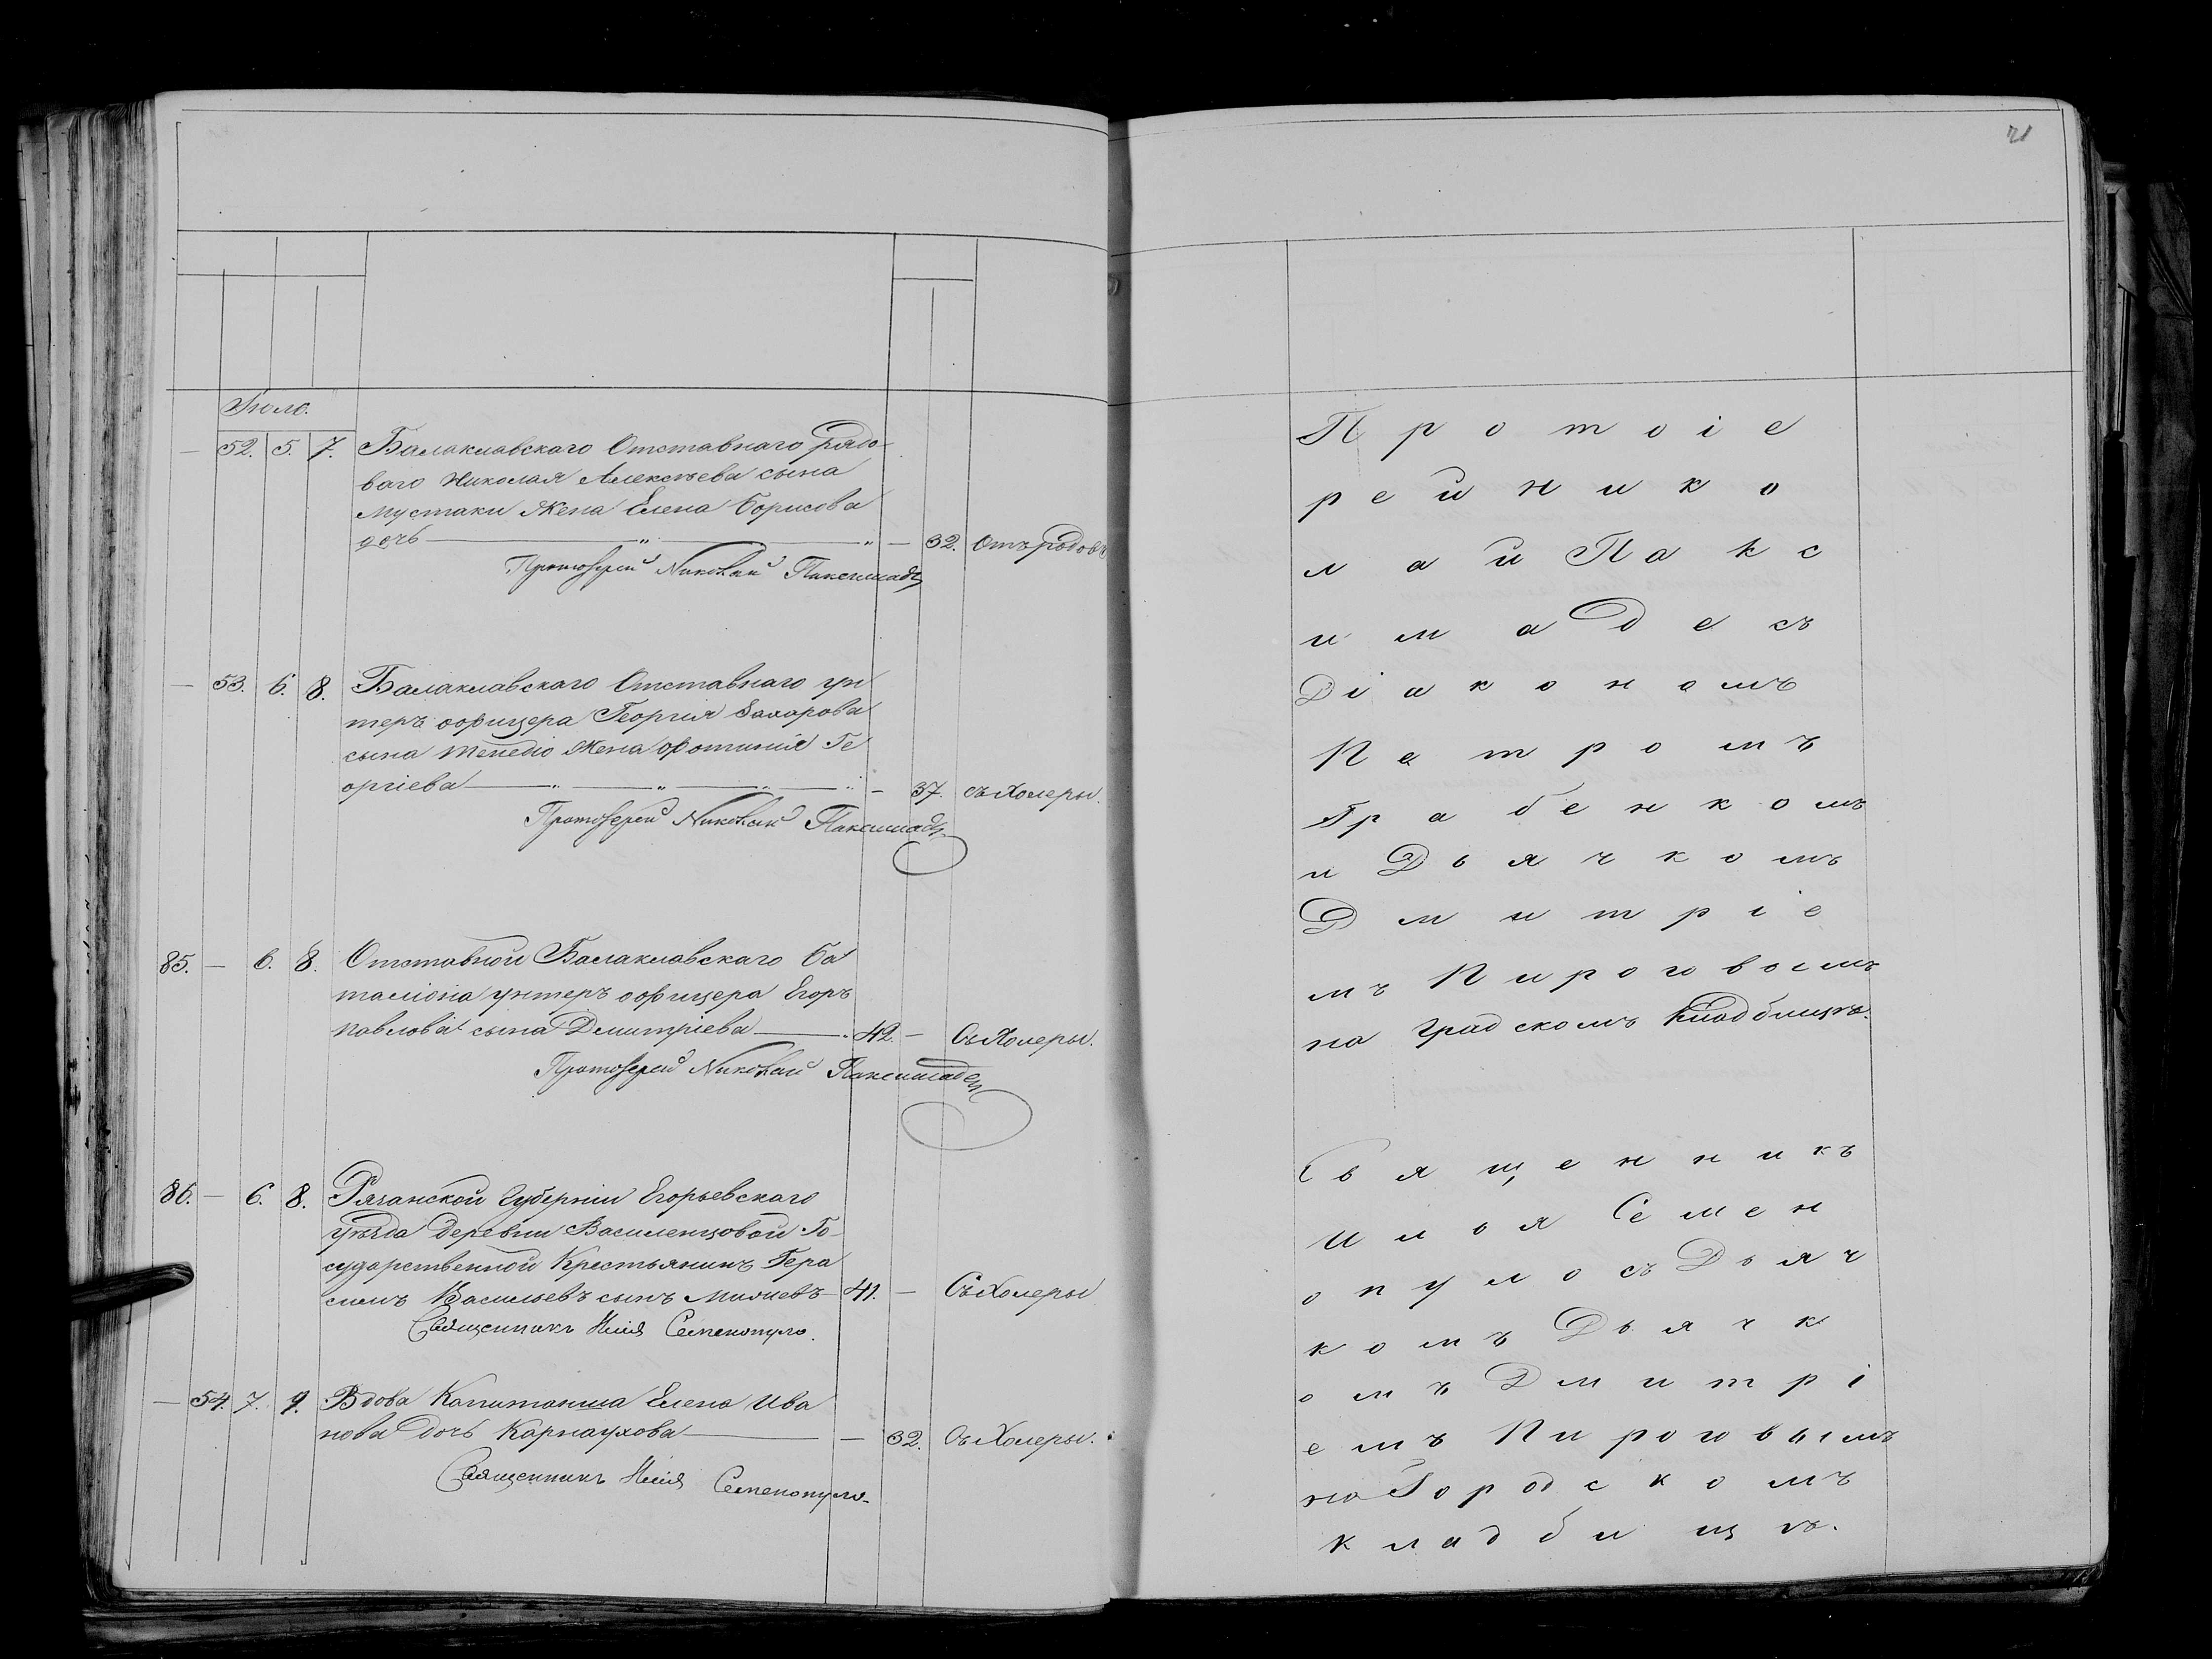 Іюль.
— 52. 5. 7. Балаклавскаго Отставнаго рядо
ваго Николая Алексѣева сына
Мустаки Жена Елена Борисова
дочь — 32. Отъ родовъ
Протоіерей Николай Паксимадъ
— 53. 6. 8. Балаклавскаго Отставнаго ун
теръ офицера Георгия Захарова
сына Жена Фотинія Ге
оргіева — 37. съ Холеры.
Протоіерей Николай Паксимадъ
85. — 6. 8. Отставной Балаклавскаго ба
таліона унтеръ офицера Егоръ
Павлова сына Дмитріева 42. — Съ Холеры.
Протоіерей Николай Паксимадъ
86. — 6. 8. Рязанской Губерніи Егорьевскаго
уѣзда деревни Василенцовой Го
сударственной Крестьянинъ Гера
симъ Васильевъ сынъ 41. — Съ Холеры
Священникъ Илія Семенопуло.
— 54. 7. 9. Вдова Капитанша Елена Ива
нова дочь Карнаухова — 32. Съ Холеры.
Священникъ Илія Семенопуло.
21
Протоіе
рей Нико
лай Пакс
имадесъ
Діакономъ
Петромъ
Грабенкомъ
и Дьячкомъ
Дмитріе
мъ Пироговымъ
на градскомъ кладбищѣ.
Священникъ
Илья Семен
опуло съ Дьяч
комъ Дьячк
омъ Дмитрі
емъ Пироговымъ
на Городскомъ
кладбищѣ.